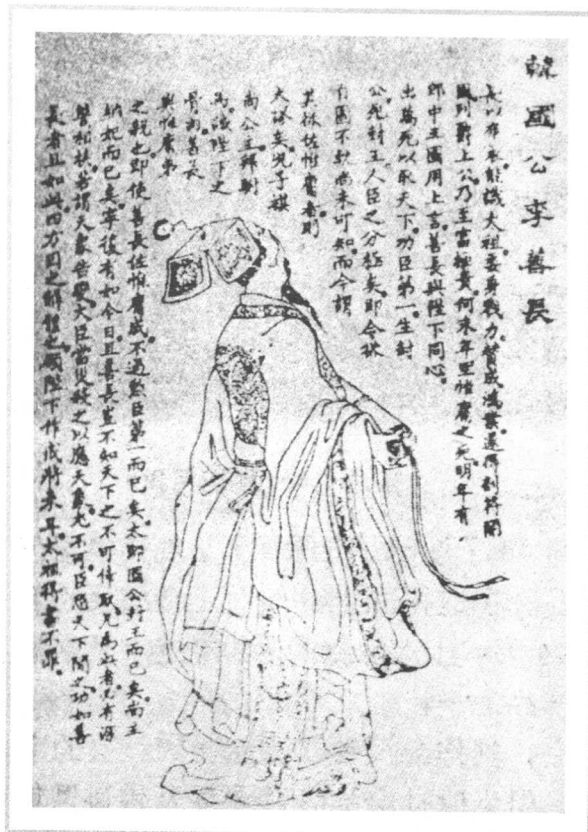 韓國公李善長
長以布衣能識太祖委身戮力贊成鴻業遂得剖符開
國列爵上公乃至富極貴何末年里惟庸之死明年有
郎中王國用上言善長與陛下同心
出萬死以取天下功臣第一生封
公死封王人臣之分極矣即令欲
自圖不軌尚未可知而今謂
其欲佐惟庸者則
大謬矣兄子祺
尚公主
陛下之
骨肉善長
與惟庸第
之親也即使善長佐惟庸成不過勲臣第一而已矣太師國公封王而已矣尚主
納妃而已矣寧復有加今日且善長豈不知天下之不可倖取
若謂天象告變大臣當災殺之以應天象尤不可臣恐天下聞之功如善
長者且如此四方因之解體也願陛下作戒將來耳太祖得書不罪